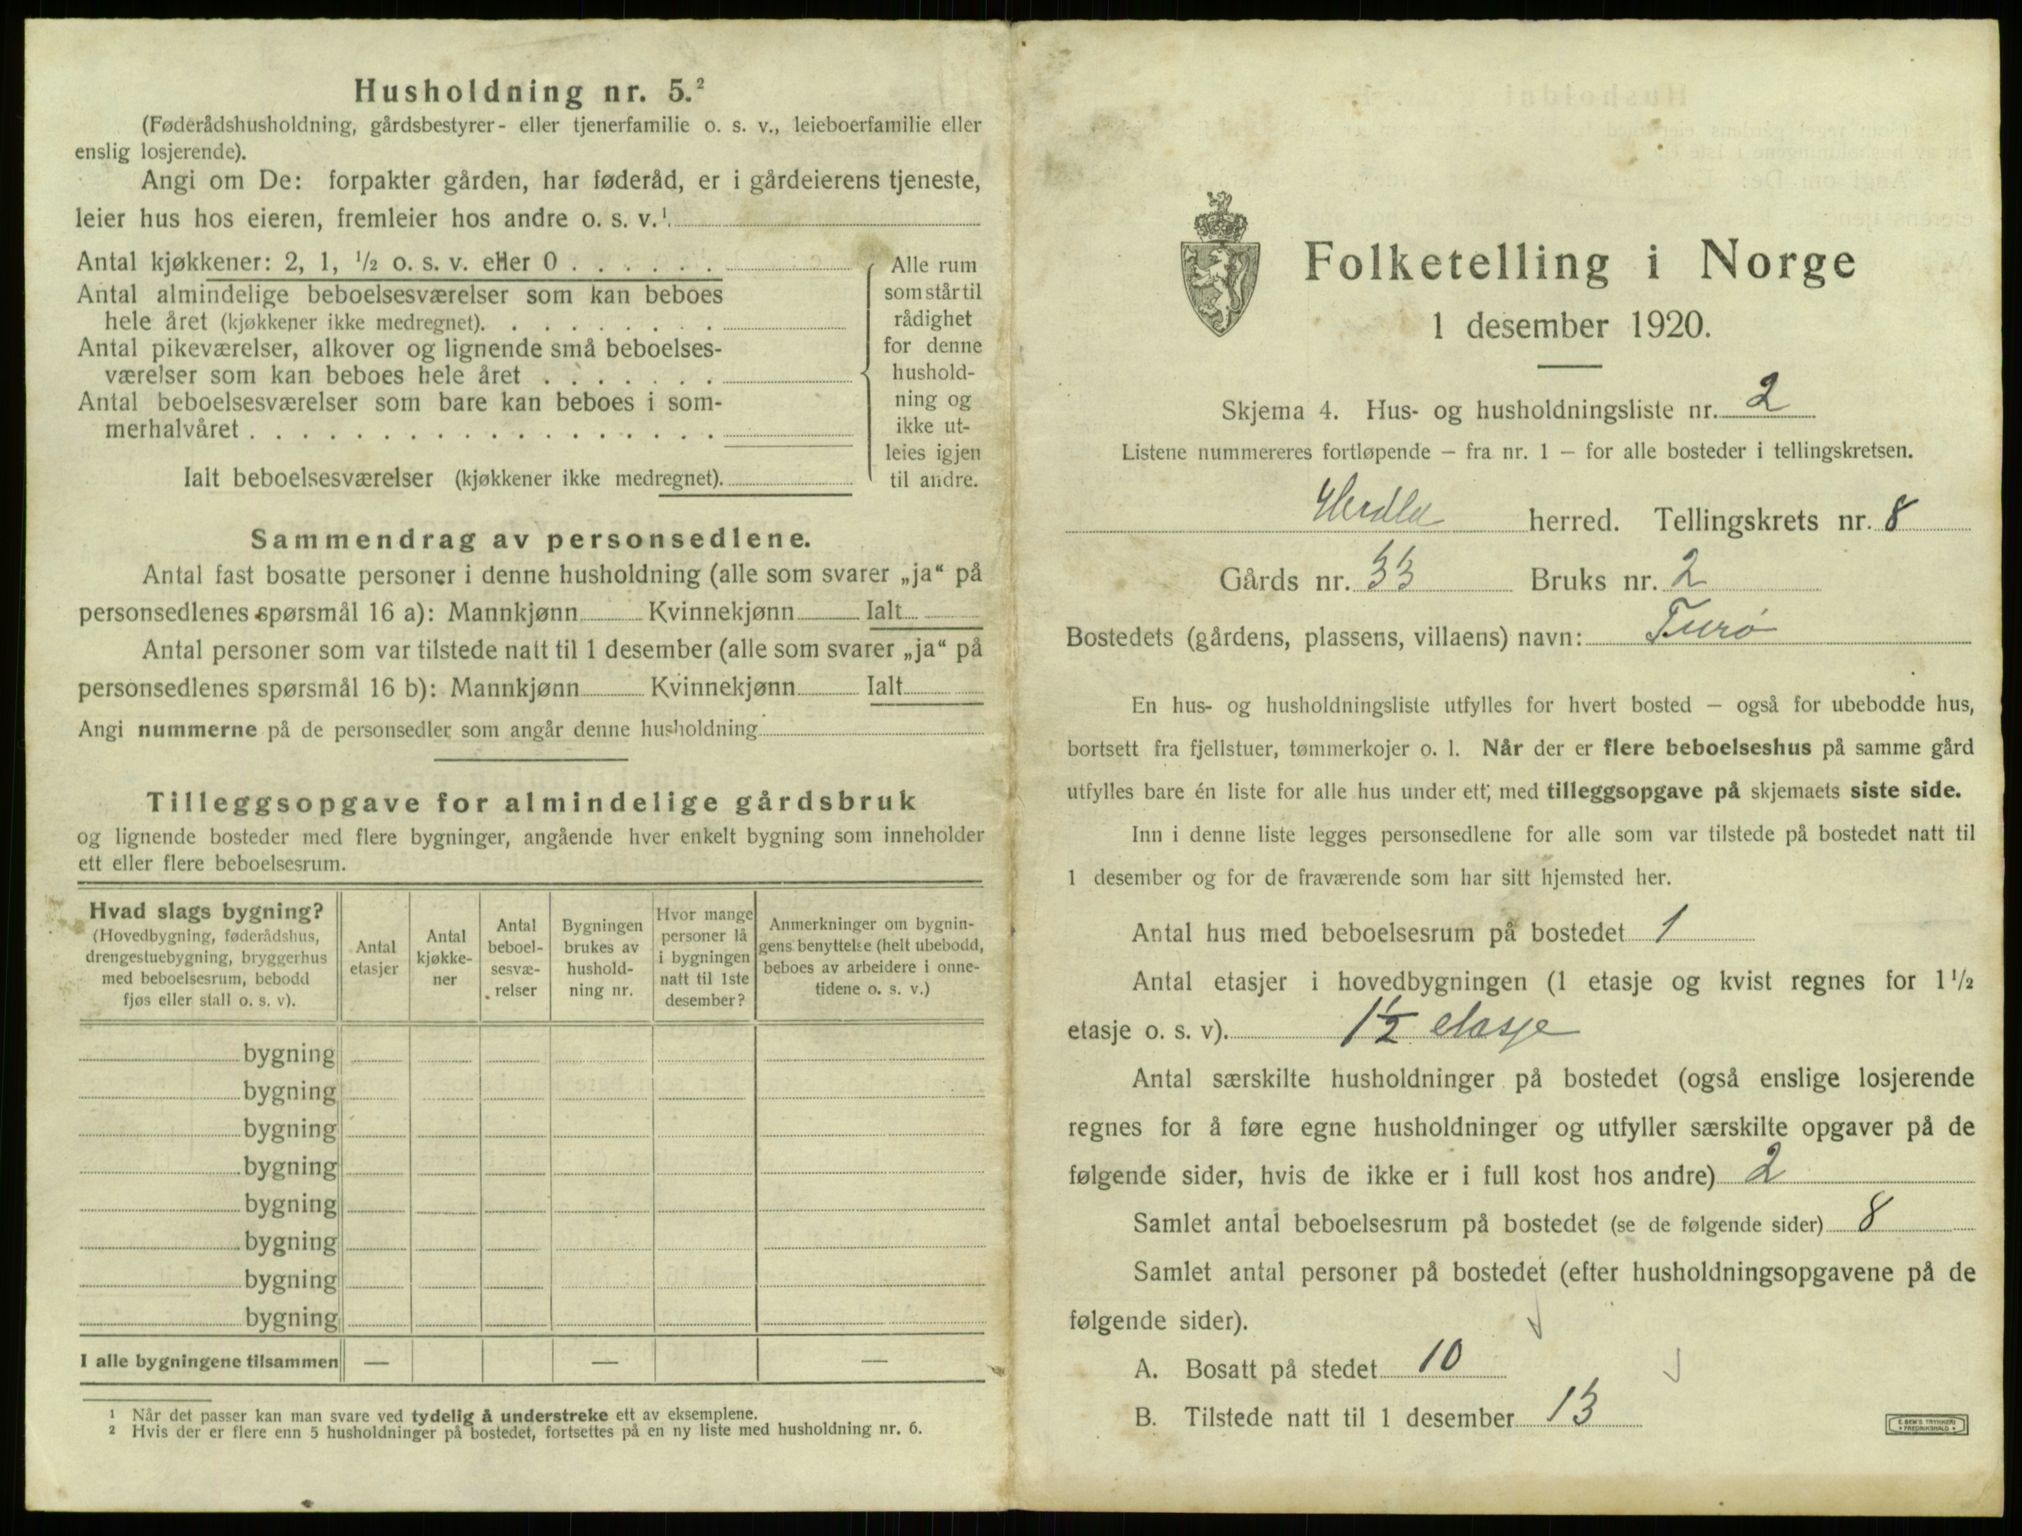 Husholdning nr. 5.²
(Føderådshusholdning, gårdsbestyrer- eller tjenerfamilie o. s. v., leieboerfamilie eller
enslig losjerende).
Angi om De: forpakter gården, har føderåd, er i gårdeierens tjeneste,
leier hus hos eieren, fremleier hos andre o. s. v.¹
Antal kjøkkener: 2, 1, ½ o. s. v. eller 0
Antal almindelige beboelsesværelser som kan beboes
hele året (kjøkkener ikke medregnet).
Antal pikeværelser, alkover og lignende små beboelses-
værelser som kan beboes hele året
Antal beboelsesværelser som bare kan beboes i som-
merhalvåret
Ialt beboelsesværelser (kjøkkener ikke medregnet).
Alle rum
som står til
rådighet
for denne
hushold-
ning og
ikke ut-
leies igjen
til andre.
Sammendrag av personsedlene.
Antal fast bosatte personer i denne husholdning (alle som svarer „ja“ på
personsedlenes spørsmål 16 a): Mannkjønn Kvinnekjønn Ialt
Antal personer som var tilstede natt til 1 desember (alle som svarer „ja“ på
personsedlenes spørsmål 16 b): Mannkjønn Kvinnekjønn Ialt
Angi nummerne på de personsedler som angår denne husholdning
Tilleggsopgave for almindelige gårdsbruk
og lignende bosteder med flere bygninger, angående hver enkelt bygning som inneholder
ett eller flere beboelsesrum.
Hvad slags bygning?
(Hovedbygning, føderådshus,
drengestuebygning, bryggerhus
med beboelsesrum, bebodd
fjøs eller stall o. s. v).
Antal
etasjer
Antal
kjøkke-
ner
Antal
beboel-
sesvæ-
relser
Bygningen
brukes av
hushold-
ning nr.
Hvor mange
personer lå
i bygningen
natt til 1ste
desember?
Anmerkninger om bygnin-
gens benyttelse (helt ubebodd,
beboes av arbeidere i onne-
tidene o. s. v.)
bygning
bygning
bygning
bygning
bygning
bygning
bygning
bygning
I alle bygningene tilsammen — — —
¹ Når det passer kan man svare ved tydelig å understreke ett av eksemplene.
² Hvis der er flere enn 5 husholdninger på bostedet, fortsettes på en ny liste med husholdning nr. 6.
Folketelling i Norge
1 desember 1920.
Skjema 4. Hus- og husholdningsliste nr. 2
Listene nummereres fortløpende – fra nr. 1 – for alle bosteder i tellingskretsen.
Herdla herred. Tellingskrets nr. 8
Gårds nr. 33 Bruks nr. 2
Bostedets (gårdens, plassens, villaens) navn: Turø
En hus- og husholdningsliste utfylles for hvert bosted – også for ubebodde hus,
bortsett fra fjellstuer, tømmerkojer o. l. Når der er flere beboelseshus på samme gård
utfylles bare én liste for alle hus under ett, med tilleggsopgave på skjemaets siste side.
Inn i denne liste legges personsedlene for alle som var tilstede på bostedet natt til
1 desember og for de fraværende som har sitt hjemsted her.
Antal hus med beboelsesrum på bostedet 1
Antal etasjer i hovedbygningen (1 etasje og kvist regnes for 1 ½
etasje o. s. v). 1½ etasje
Antal særskilte husholdninger på bostedet (også enslige losjerende
regnes for å føre egne husholdninger og utfyller særskilte opgaver på de
følgende sider, hvis de ikke er i full kost hos andre) 2
Samlet antal beboelsesrum på bostedet (se de følgende sider) 8
Samlet antal personer på bostedet (efter husholdningsopgavene på de
følgende sider).
A. Bosatt på stedet 10
B. Tilstede natt til 1 desember 13